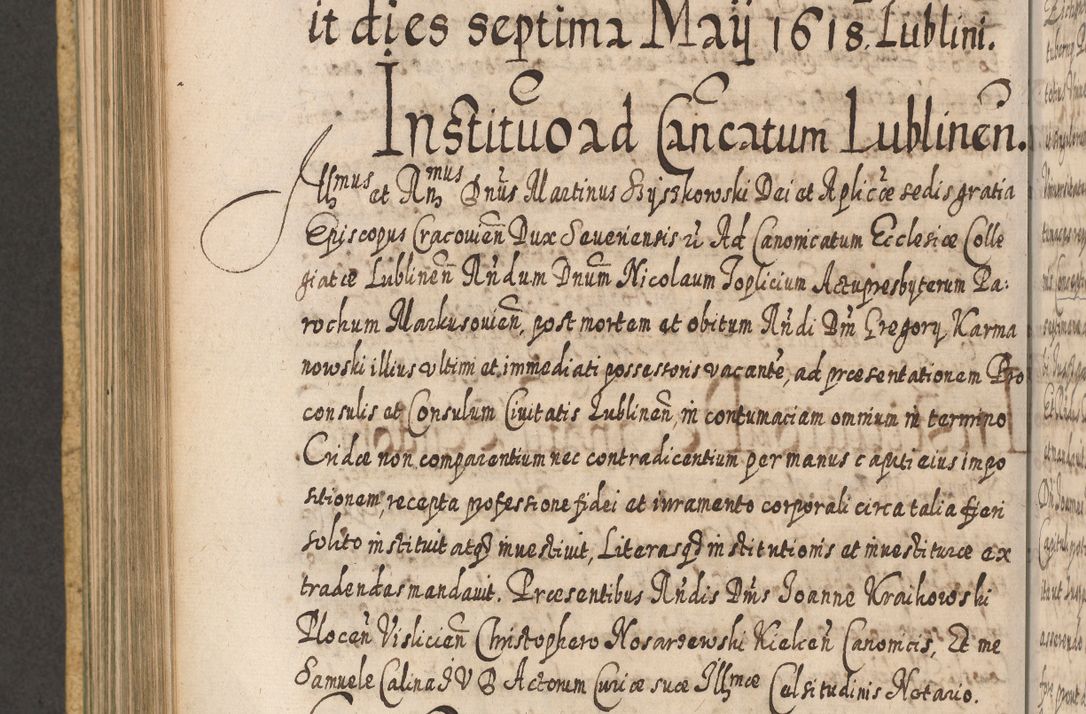 it dies septima Maij 1618. Lublini.
Institutio ad Cancatum Lublinen̄.
Illmus et Rmus Dn̄us Martinus Szyszkowski Dei et Aplicæ sedis gratia
Episcopus Cracovien̄ Dux Severiensis Ad Canonicatum Ecclesiæ Colle
giatæ Lublinen̄ Rn̄dum Dnūm Nicolaum Toplicium Actupresbyterum Pa-
rochum Markusovien̄, post mortem et obitum Rn̄di Dm̄ Gregory Karma
nowski illius ultimi et immediati possessoris vacante, ad præsentationem Pro
consulis et Consulum Civitatis Lublinen̄, in contumaciam omnium in termino
Cridæ non comparentium nec contradicentium per manus capiti eius impo
sitionem recepta professione fidei et iuramento corporali circa talia fieri
solito instituit atq inuestiuit, Literasq institutionis et inuestituræ ex
tradendas mandauit. Præsentibus Rn̄dis Dn̄is Joanne Kraikowski
Plocen̄ Vislicien̄ Christophero Nosarzewski Kielcen̄ Canonicis, Et me
Samuele Calina J V D Actorum Curiæ suæ Illmæ Celsitudinis Notario.